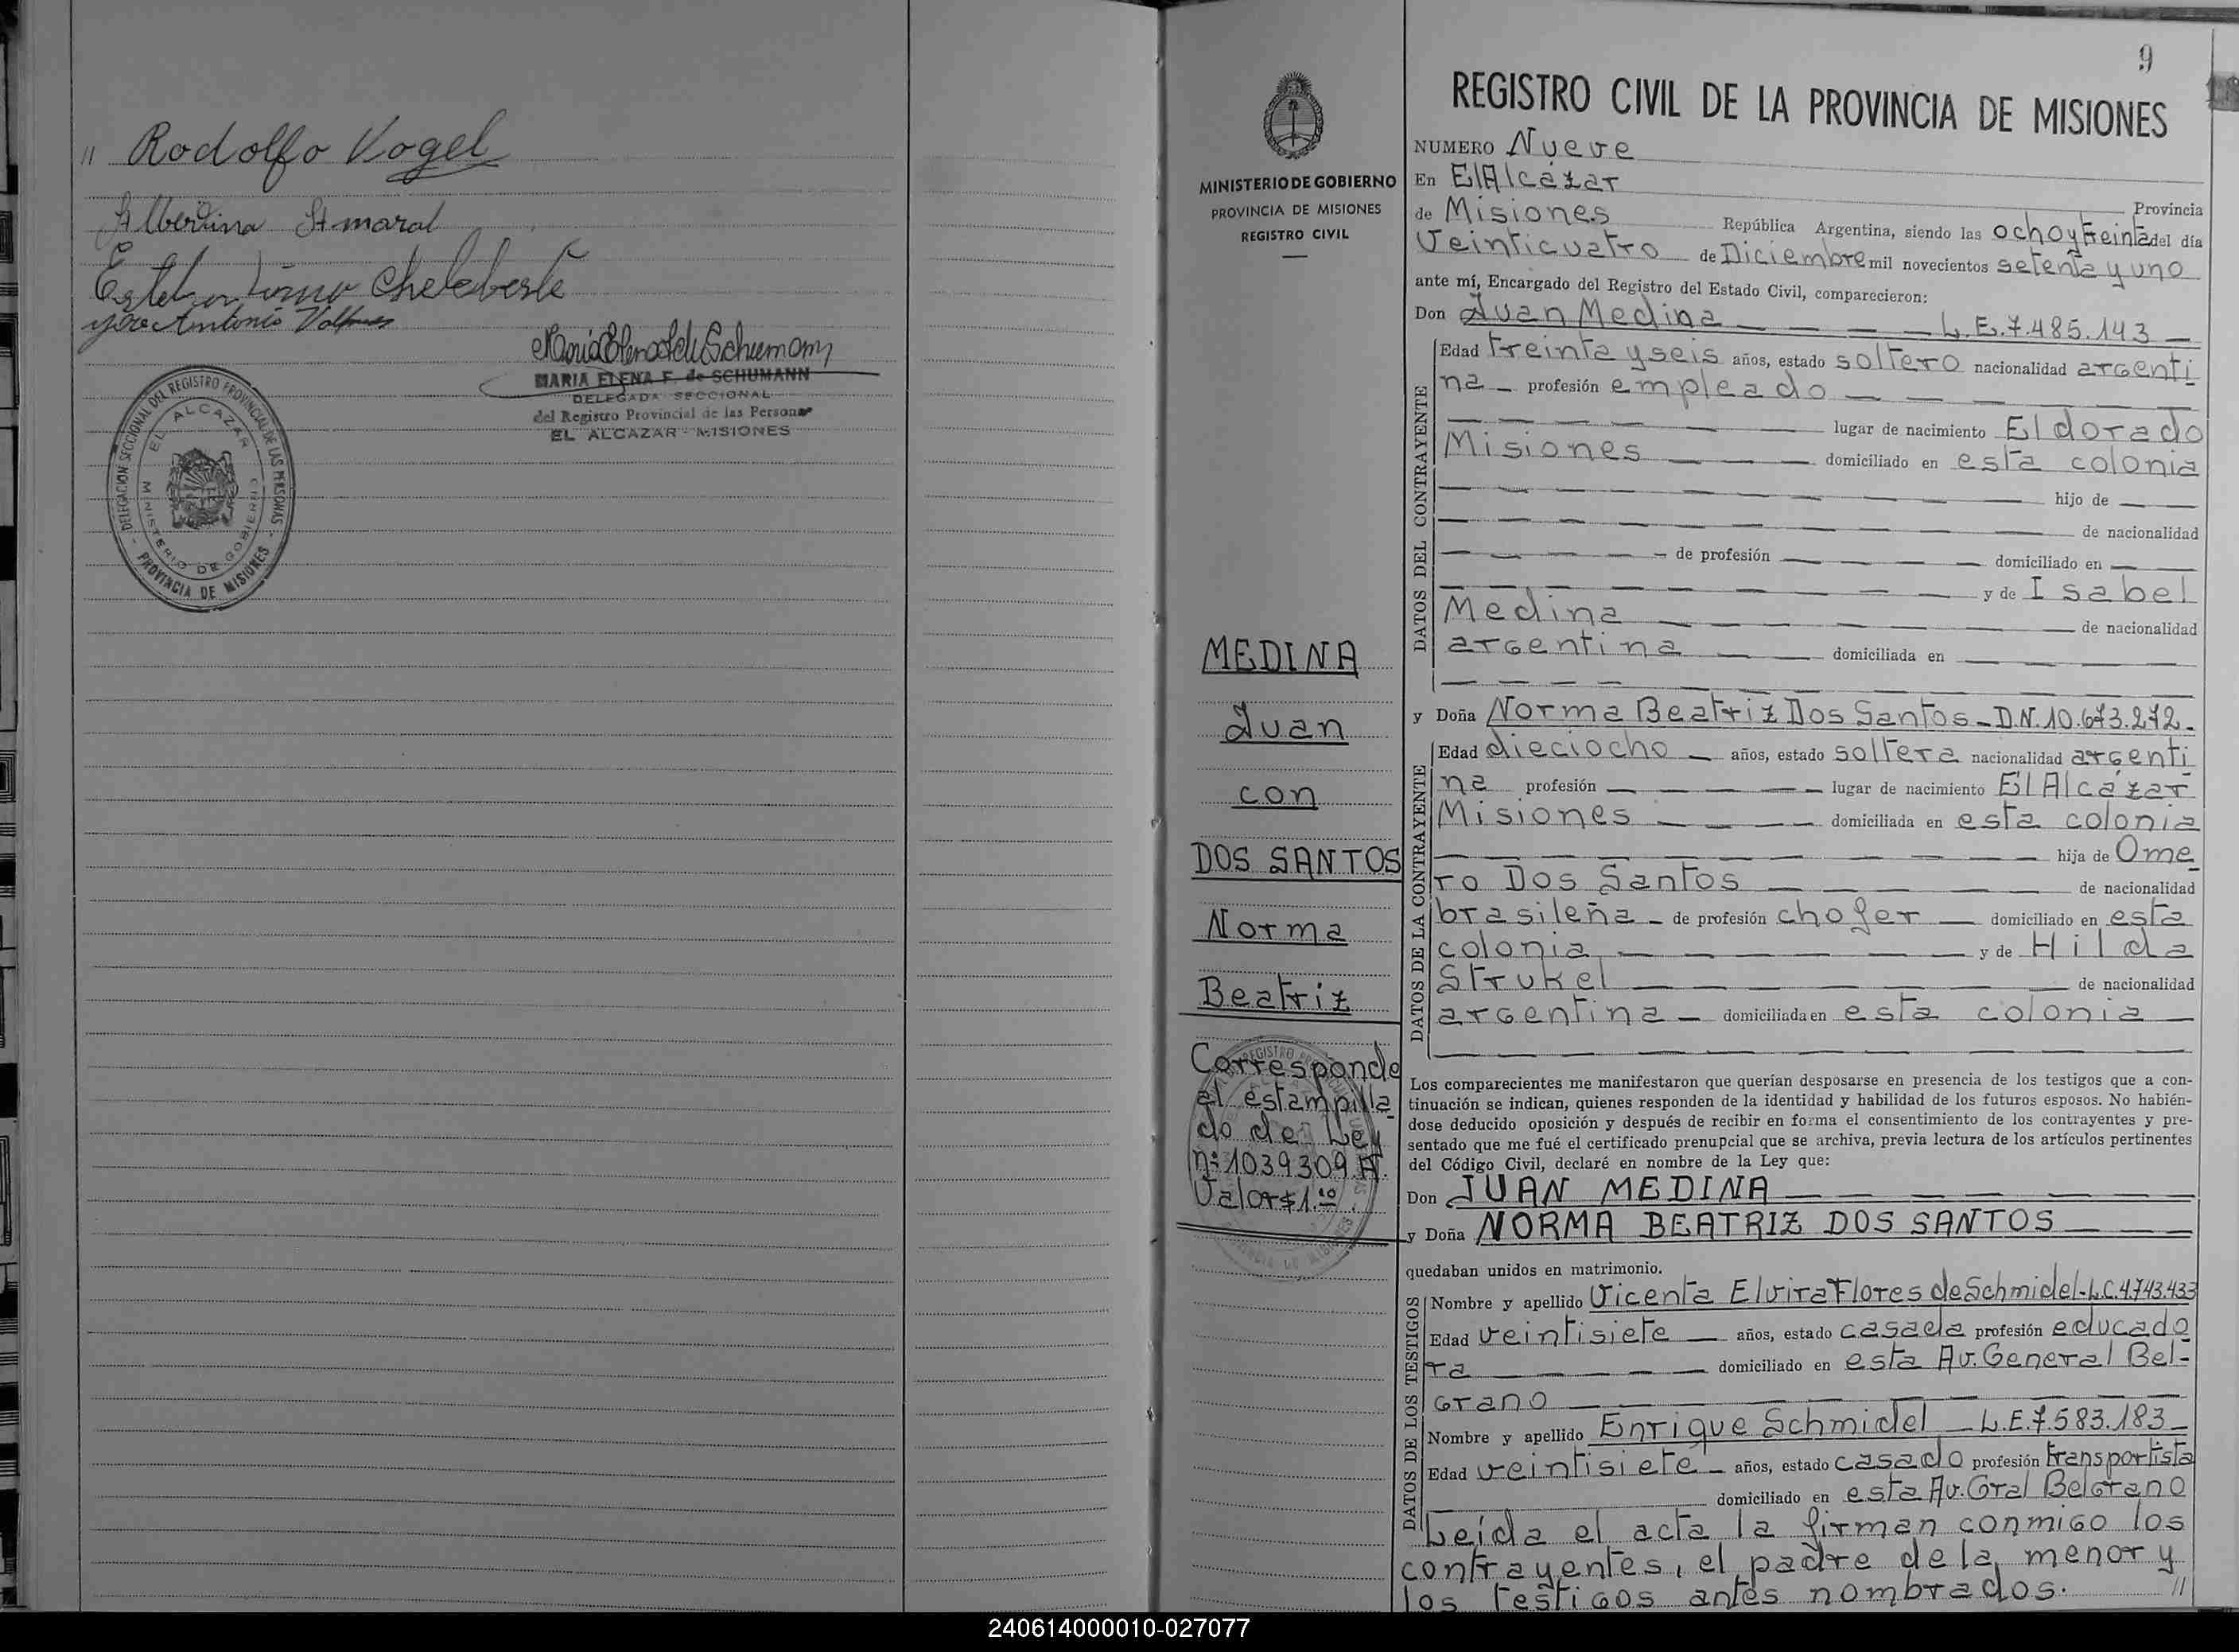 // Rodolfo Vogel
Albertina Amaral
MARIA ELENA F. de SCHUMANN
DELEGADA SECCIONAL
del Registro Provincial de las Personas
EL ALCAZAR - MISIONES
DELEGACION SECCIONAL DEL REGISTRO PROVINCIAL DE LAS PERSONAS
- PROVINCIA DE MISIONES -
EL ALCAZAR
MINISTERIO DE GOBIERNO
MINISTERIO DE GOBIERNO
PROVINCIA DE MISIONES
REGISTRO CIVIL
MEDINA
Juan
con
DOS SANTOS
Norma
Beatriz
Corresponde
el estampilla
do de Ley
nº 1039309 A.
Valor $ 1.00
9
REGISTRO CIVIL DE LA PROVINCIA DE MISIONES
NUMERO Nueve
En El Alcázar
Provincia
de Misiones República Argentina, siendo las ocho y treinta del día
Veinticuatro de Diciembre mil novecientos setenta y uno
ante mí, Encargado del Registro del Estado Civil, comparecieron:
Don Juan Medina — — — L.E. 7.485.143 —
DATOS DEL CONTRAYENTE
Edad treinta y seis años, estado soltero nacionalidad argenti
na — profesión empleado — — — — —
— — — — — — lugar de nacimiento Eldorado
Misiones — — — domiciliado en esta colonia
— — — — — — — — — hijo de — —
— — — — — — — — — de nacionalidad
— — — — — de profesión — — — — domiciliado en — —
— — — — — — — — y de Isabel
Medina — — — — — — de nacionalidad
argentina — — domiciliada en — — — —
— — — —
y Doña Norma Beatriz Dos Santos - D.N. 10.673.272.
DATOS DE LA CONTRAYENTE
Edad dieciocho — años, estado soltera nacionalidad argenti
na profesión — — — — — lugar de nacimiento El Alcázar
Misiones — — — — domiciliada en esta colonia
— — — — — — — — hija de Ome
ro Dos Santos — — — — — de nacionalidad
brasileña - de profesión chofer — domiciliado en esta
colonia — — — — — — y de Hilda
Strukel — — — — — — de nacionalidad
argentina — domiciliada en esta colonia —
— — — — — — — — —
Los comparecientes me manifestaron que querían desposarse en presencia de los testigos que a con-
tinuación se indican, quienes responden de la identidad y habilidad de los futuros esposos. No habién-
dose deducido oposición y después de recibir en forma el consentimiento de los contrayentes y pre-
sentado que me fué el certificado prenupcial que se archiva, previa lectura de los artículos pertinentes
del Código Civil, declaré en nombre de la Ley que:
Don JUAN MEDINA — — — — — —
y Doña NORMA BEATRIZ DOS SANTOS — —
quedaban unidos en matrimonio.
DATOS DE LOS TESTIGOS
Nombre y apellido Vicenta Elvira Flores de Schmidel - L.C. 4.743.433
Edad veintisiete — años, estado casada profesión educado
ra — — — — domiciliado en esta Av. General Bel-
grano — — — — — —
Nombre y apellido Enrique Schmidel — L.E. 7.583.183 —
Edad veintisiete - años, estado casado profesión transportista
domiciliado en esta Av. Gral Belgrano
Leída el acta la firman conmigo los
contrayentes, el padre de la menor y
los testigos antes nombrados. //
240614000010-027077